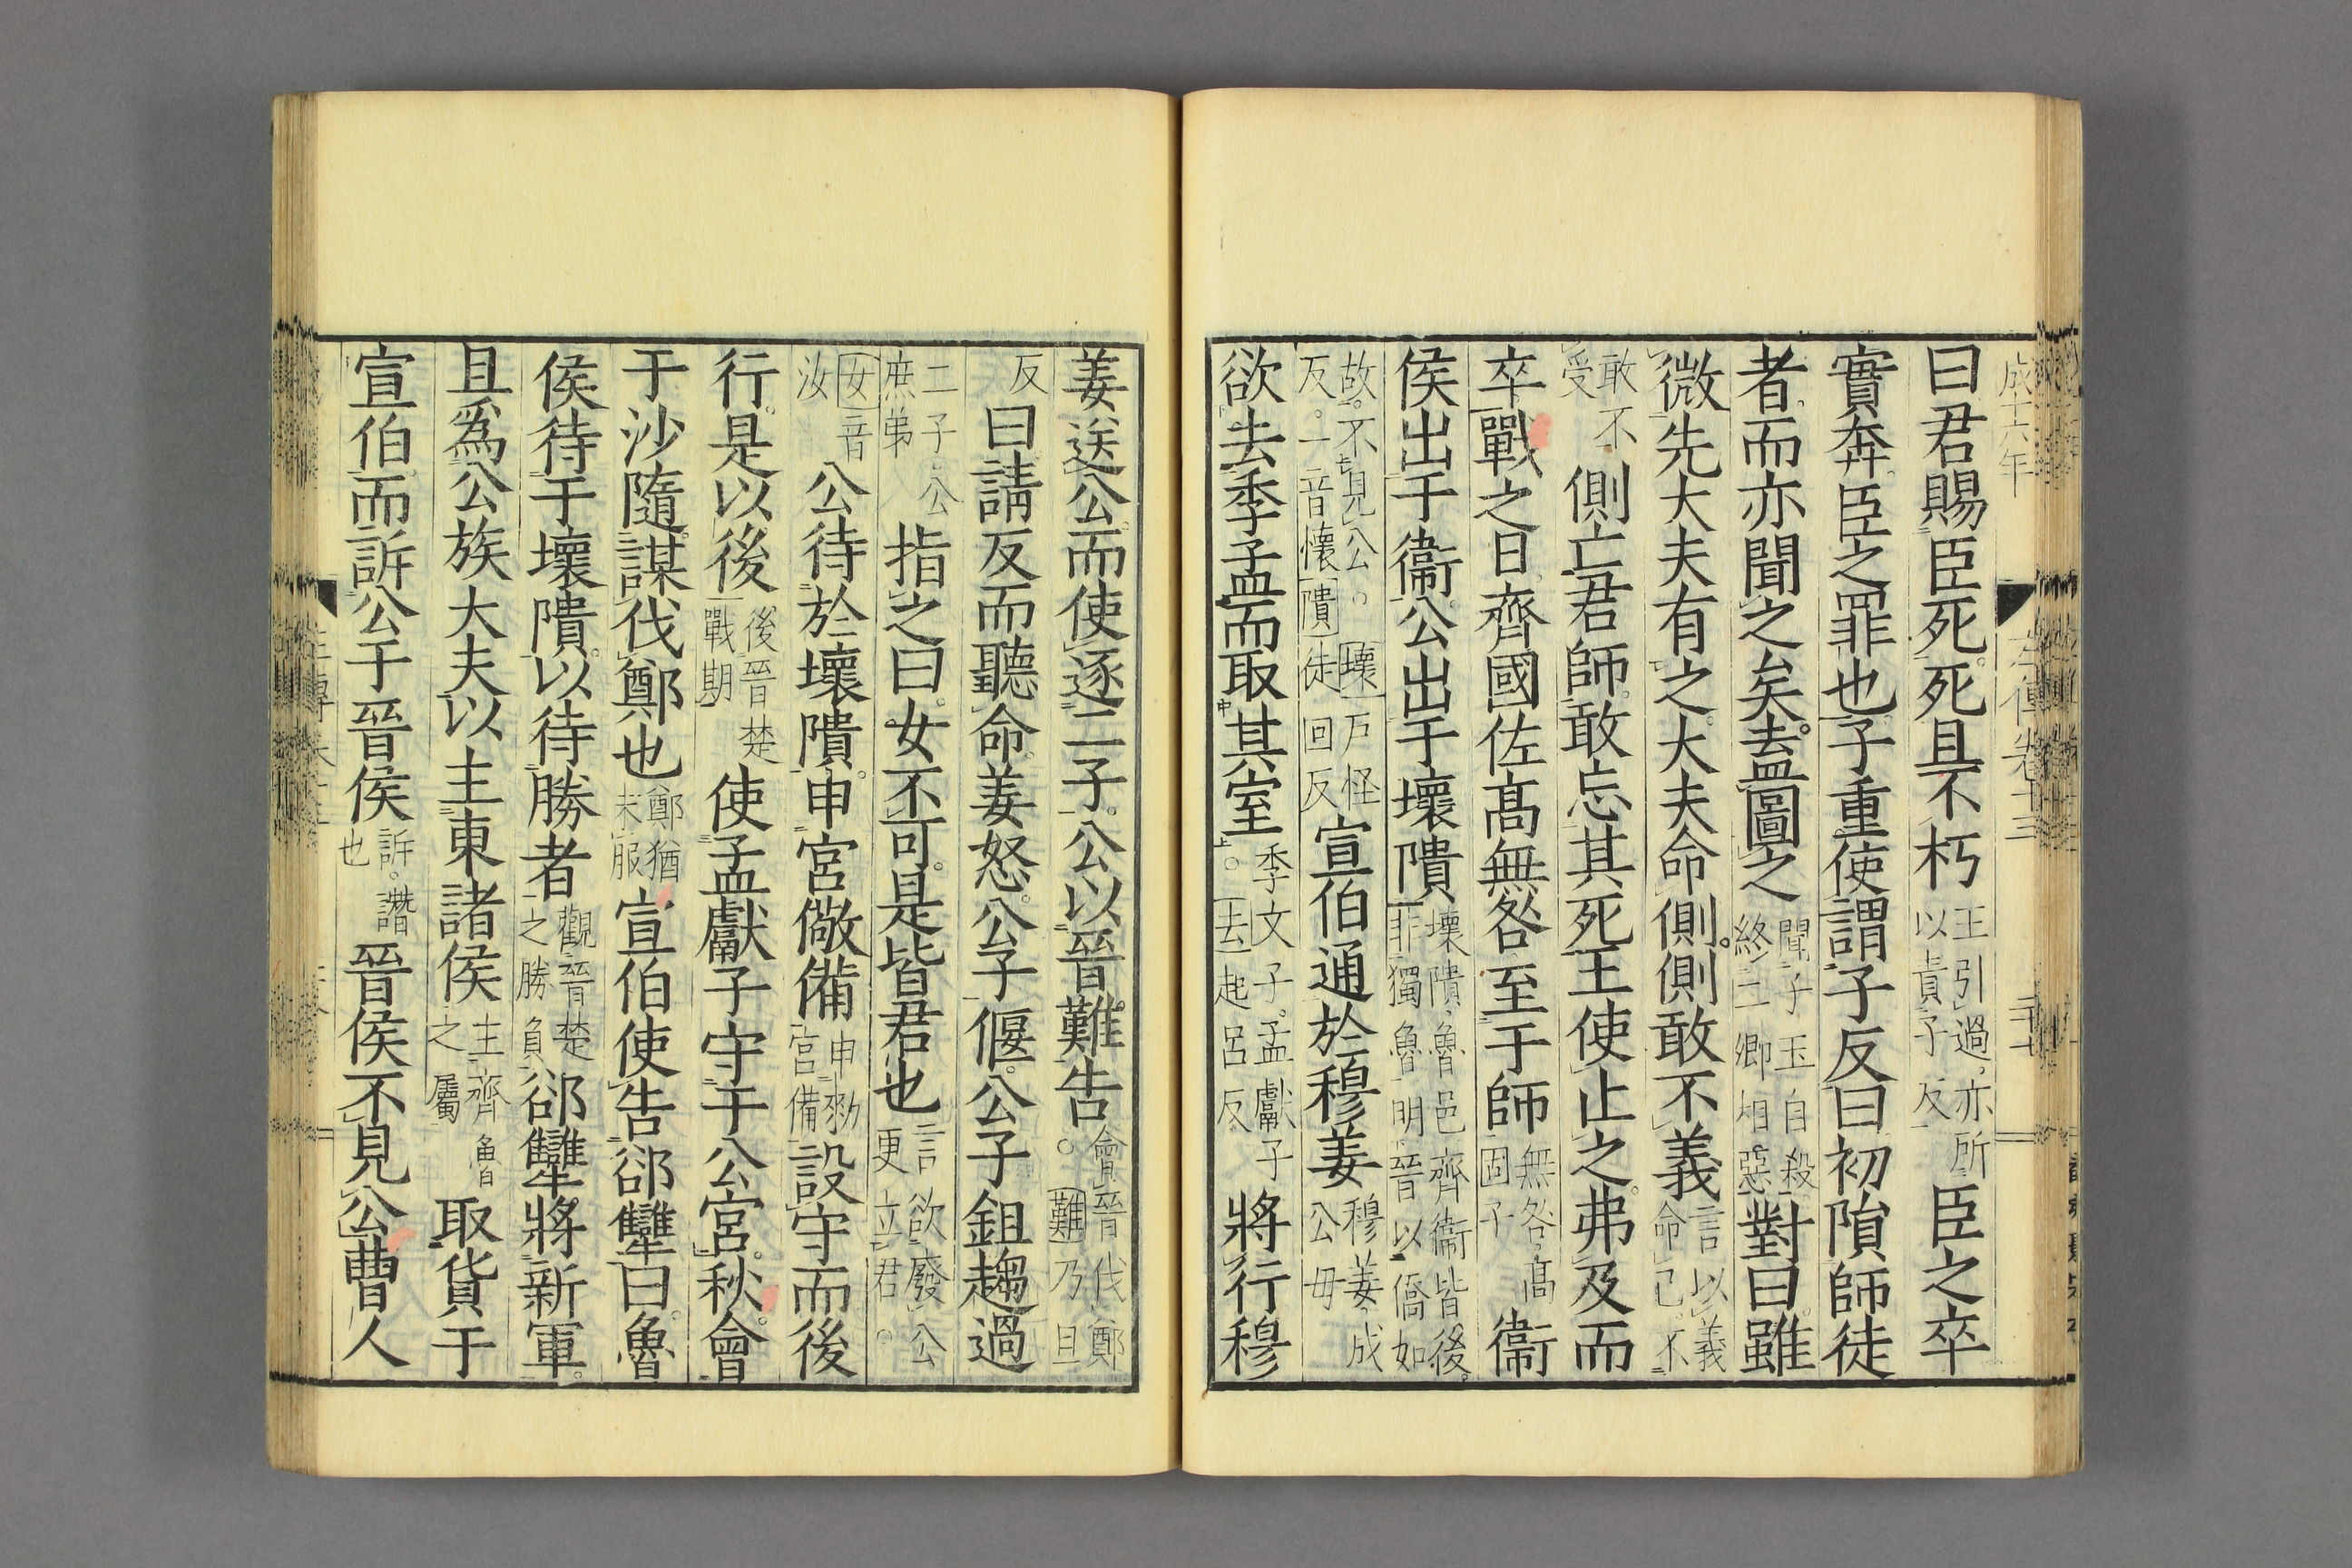 成十六年
左傳卷十三
二十七
曰君賜臣死死且不朽王引過亦所以責子反臣之卒
實奔臣之罪也子重使謂子反曰初隕師徒
者而亦聞之矣盍圖之聞子玉自殺終二卿相惡對曰雖
微先大夫有之大夫命側側敢不義言以義命己不
敢不受側亡君師敢忘其死王使止之弗及而
卒戰之日齊國佐高無咎至于師無咎高固子衞
侯出于衞公出于壞隤壞隤魯邑齊衞皆後非獨魯明晉以僑如
故不見公壞戶怪反一音懷隤徒回反宣伯通於穆姜穆姜成公毋
欲去季孟而取其室季文子孟獻子去起呂反將行穆
姜送公而使逐二子公以晉難告會晉伐鄭難乃旦
反曰請反而聽命姜怒公子偃公子鉏趨過
二子公庶弟指之曰女不可是皆君也言欲廢公更立君
女音汝公待於壞隤申宮儆備申勑宮備設守而後
行是以後後晉楚戰期使孟獻子守于公宮秋會
于沙隨謀伐鄭也鄭猶未服宣伯使告郤犨曰魯
侯待于壞隤以待勝者觀晉楚之勝負郤犨將新軍
且爲公族大夫以主東諸侯主齊魯之屬取貨于
宣伯而訴公于晉侯訴譖也晉侯不見公曹人